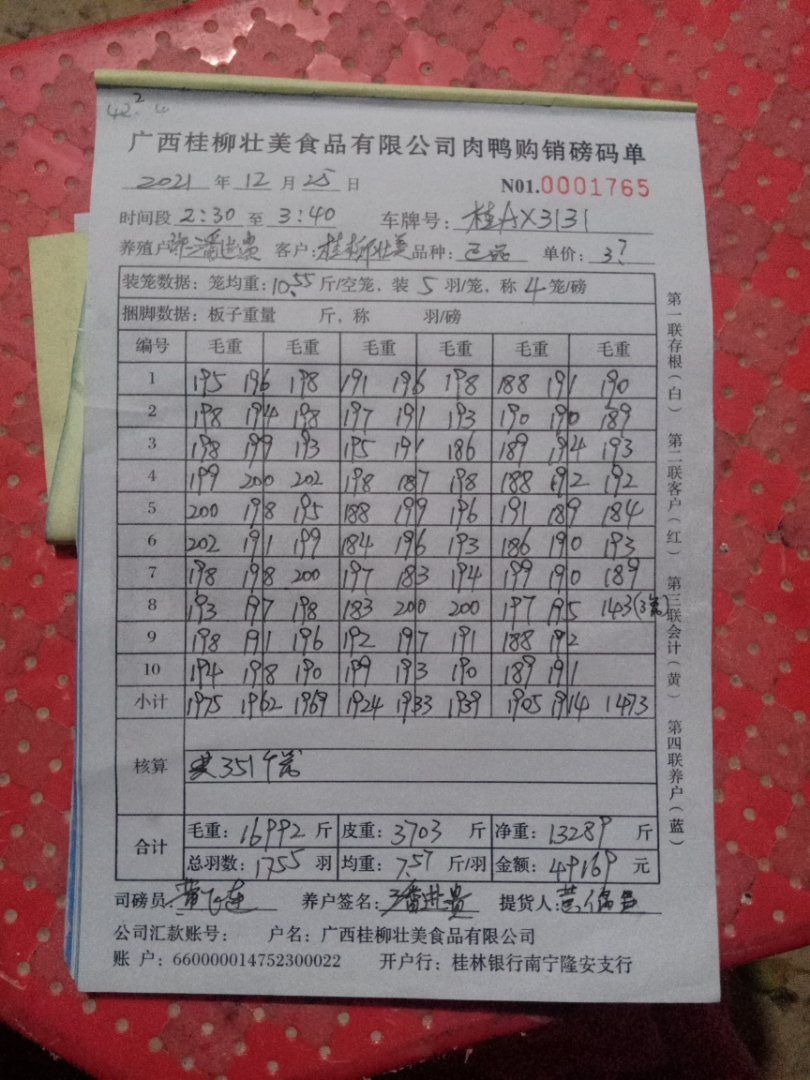 广西桂柳壮美食品有限公司肉鸭购销磅码单
2021 年 12 月 25 日 N01.0001765
时间段 2:30 至 3:40 车牌号: 桂AX3131
养殖户 潘进贵 客户: 桂柳壮美 品种: 单价: 3?
装笼数据: 笼均重: 10.55 斤/空笼, 装 5 羽/笼, 称 4 笼/磅
捆脚数据: 板子重量 斤, 称 羽/磅
编号 毛重 毛重 毛重 毛重 毛重 毛重
1 195 196 198 191 196 198 188 191 190
2 198 194 198 197 191 193 190 190 189
3 198 199 193 195 191 186 189 194 193
4 199 200 202 198 187 198 188 192 192
5 200 198 195 188 199 196 191 189 184
6 202 191 199 184 196 193 186 190 193
7 198 198 200 197 183 194 199 190 189
8 193 197 198 183 200 200 197 195 143(3笼)
9 198 191 196 192 197 191 188 192
10 194 198 190 199 193 190 189 191
小计 1975 1962 1969 1924 1933 1939 1905 1914 1473
核算 共351个笼
合计 毛重: 16992 斤 皮重: 3703 斤 净重: 13289 斤
总羽数: 1755 羽 均重: 7.57 斤/羽 金额: 49169 元
司磅员 养户签名: 潘进贵 提货人:
公司汇款账号: 户名: 广西桂柳壮美食品有限公司
账 户: 660000014752300022 开户行: 桂林银行南宁隆安支行
第一联存根(白) 第二联客户(红) 第三联会计(黄) 第四联养户(蓝)